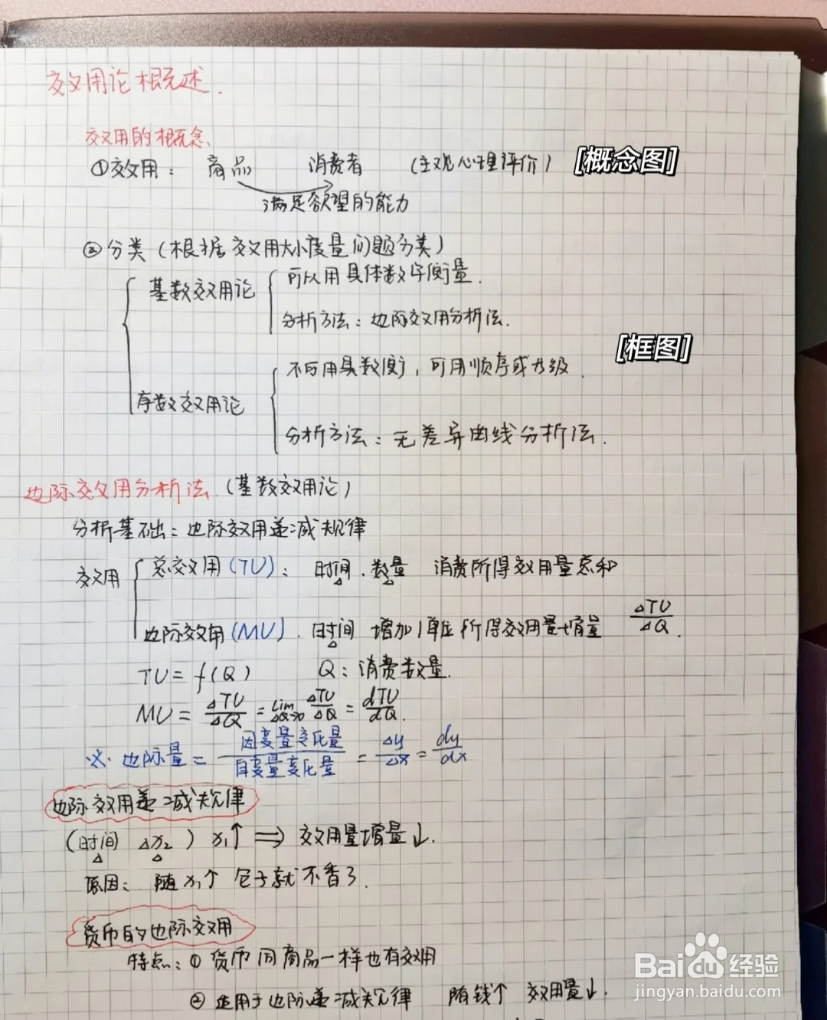 效用论概述.
效用的概念.
①效用： 商品 消费者 （主观心理评价） [概念图]
满足欲望的能力
②分类（根据效用大小度量问题分类）
基数效用论
可以用具体数字衡量.
分析方法：边际效用分析法.
[框图]
序数效用论
不可用具数衡，可用顺序或等级.
分析方法：无差异曲线分析法.
边际效用分析法（基数效用论）
分析基础：边际效用递减规律
效用
总效用（TU）： 时间.数量 消费所得效用量总和
边际效用（MU）. 时间 增加1单位所得效用量增量 ΔTU/ΔQ.
TU = f(Q) Q：消费数量.
MU = ΔTU/ΔQ = lim ΔQ→0 ΔTU/ΔQ = dTU/dQ.
※. 边际量 = 因变量变化量/自变量变化量 = Δy/Δx = dy/dx
边际效用递减规律
（时间 Δx₂）x₁↑ ⟹ 效用量增量↓.
原因：随x₁↑ 包子就不香了.
货币的边际效用
特点：① 货币同商品一样也有效用
② 适用于边际递减规律 随钱↑ 效用量↓.
Baidu经验
jingyan.baidu.com